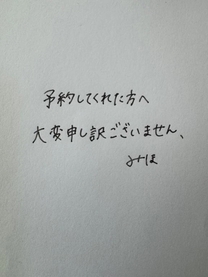 予約してくれた方へ
大変申し訳ございません、
みほ